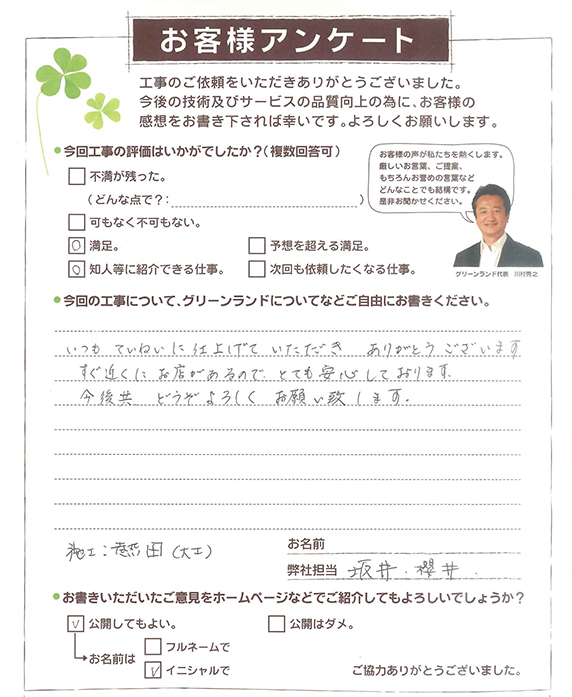 お客様アンケート
工事のご依頼をいただきありがとうございました。
今後の技術及びサービスの品質向上の為に、お客様の
感想をお書き下されば幸いです。よろしくお願いします。
今回工事の評価はいかがでしたか？（複数回答可）
不満が残った。
（どんな点で？：）
可もなく不可もない。
満足。
予想を超える満足。
知人等に紹介できる仕事。
次回も依頼したくなる仕事。
お客様の声が私たちを熱くします。
厳しいお言葉、ご提案、
もちろんお誉めの言葉など
どんなことでも結構です。
是非お聞かせください。
グリーンランド代表 川村秀之
今回の工事について、グリーンランドについてなどご自由にお書きください。
いつも ていねいに 仕上げて いただき ありがとう ございます
すぐ近くに お店があるので、とても 安心して おります。
今後共 どうぞ よろしく お願い 致します。
施工：田（大工）
お名前
弊社担当 坂井・櫻井
お書きいただいたご意見をホームページなどでご紹介してもよろしいでしょうか？
公開してもよい。
公開はダメ。
お名前は
フルネームで
イニシャルで
ご協力ありがとうございました。